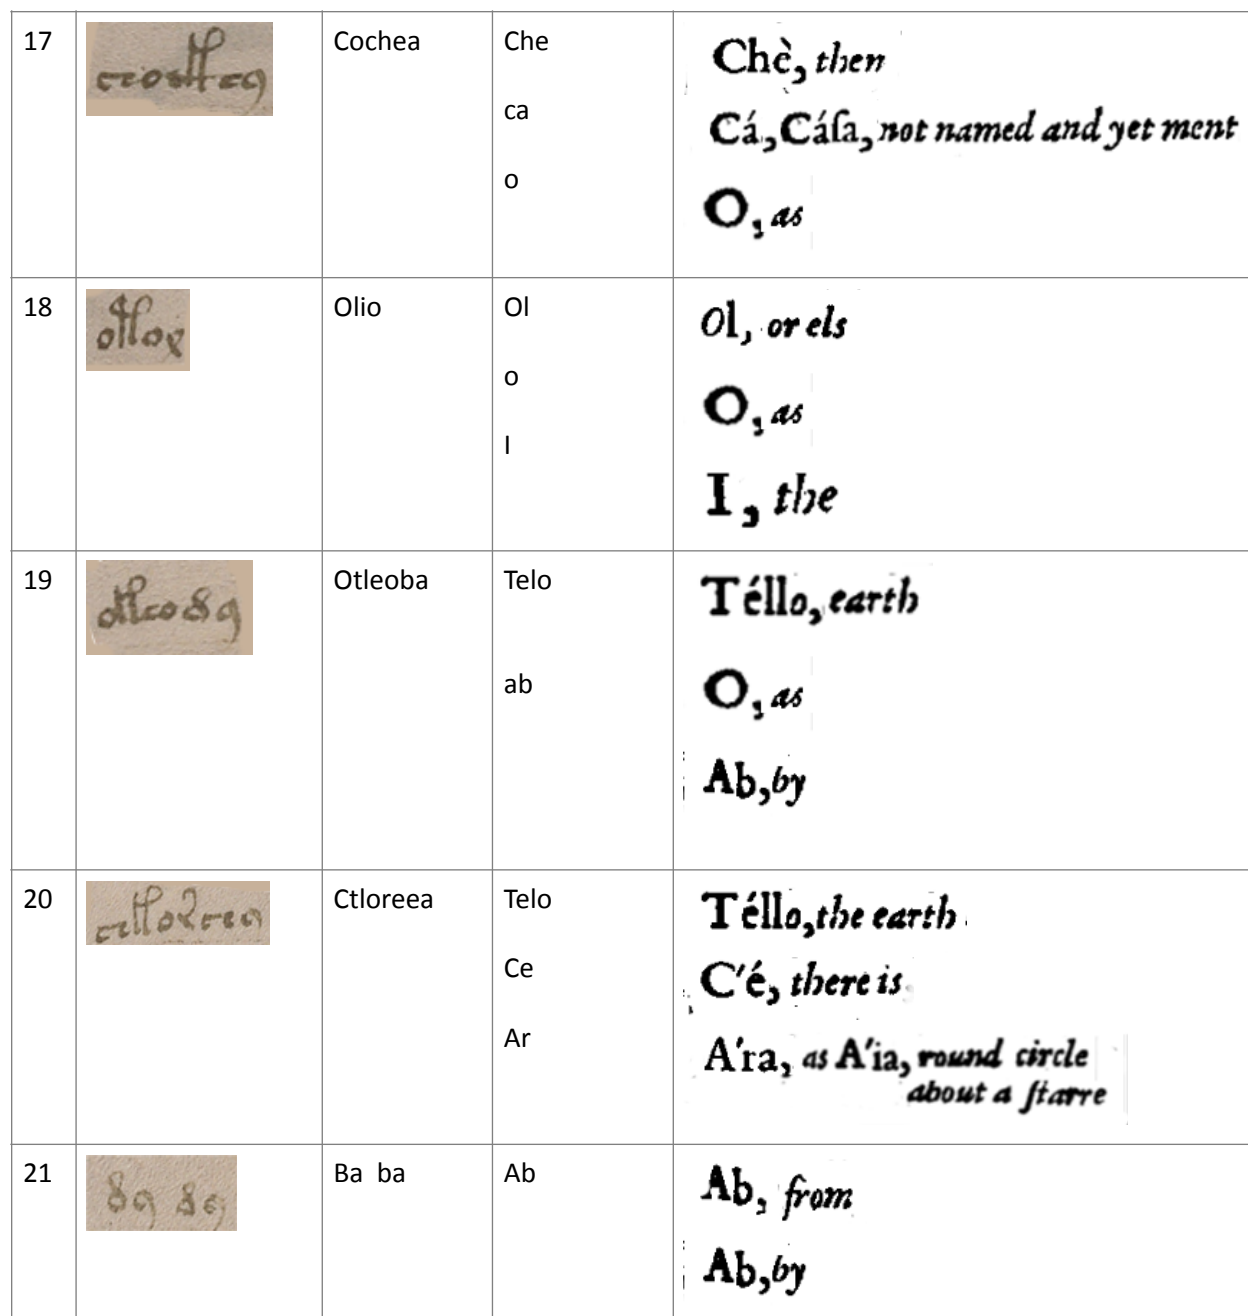 17 Cochea Che Chè, then
ca Cá, Cáſa, not named and yet ment
o O, as
18 Olio Ol Ol, or els
o O, as
I I, the
19 Otleoba Telo Téllo, earth
O, as
ab Ab, by
20 Ctloreea Telo Téllo, the earth
Ce C'é, there is
Ar A'ra, as A'ia, round circle
about a ſtarre
21 Ba ba Ab Ab, from
Ab, by